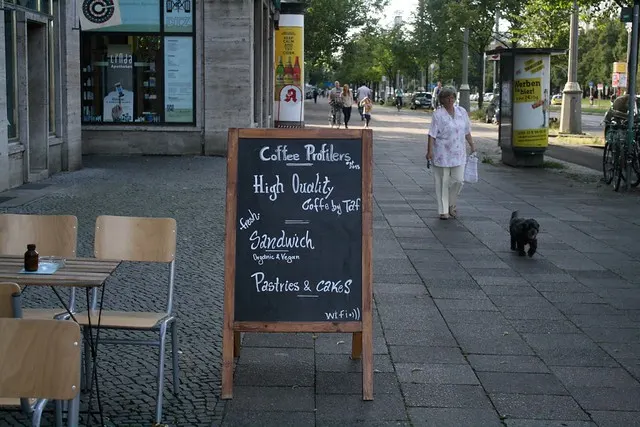 Coffee Profilers
High Quality
Coffe by Taf
fresh
Sandwich
Organic & Vegan
Pastries & cakes
wifi)))
Werben
hier!